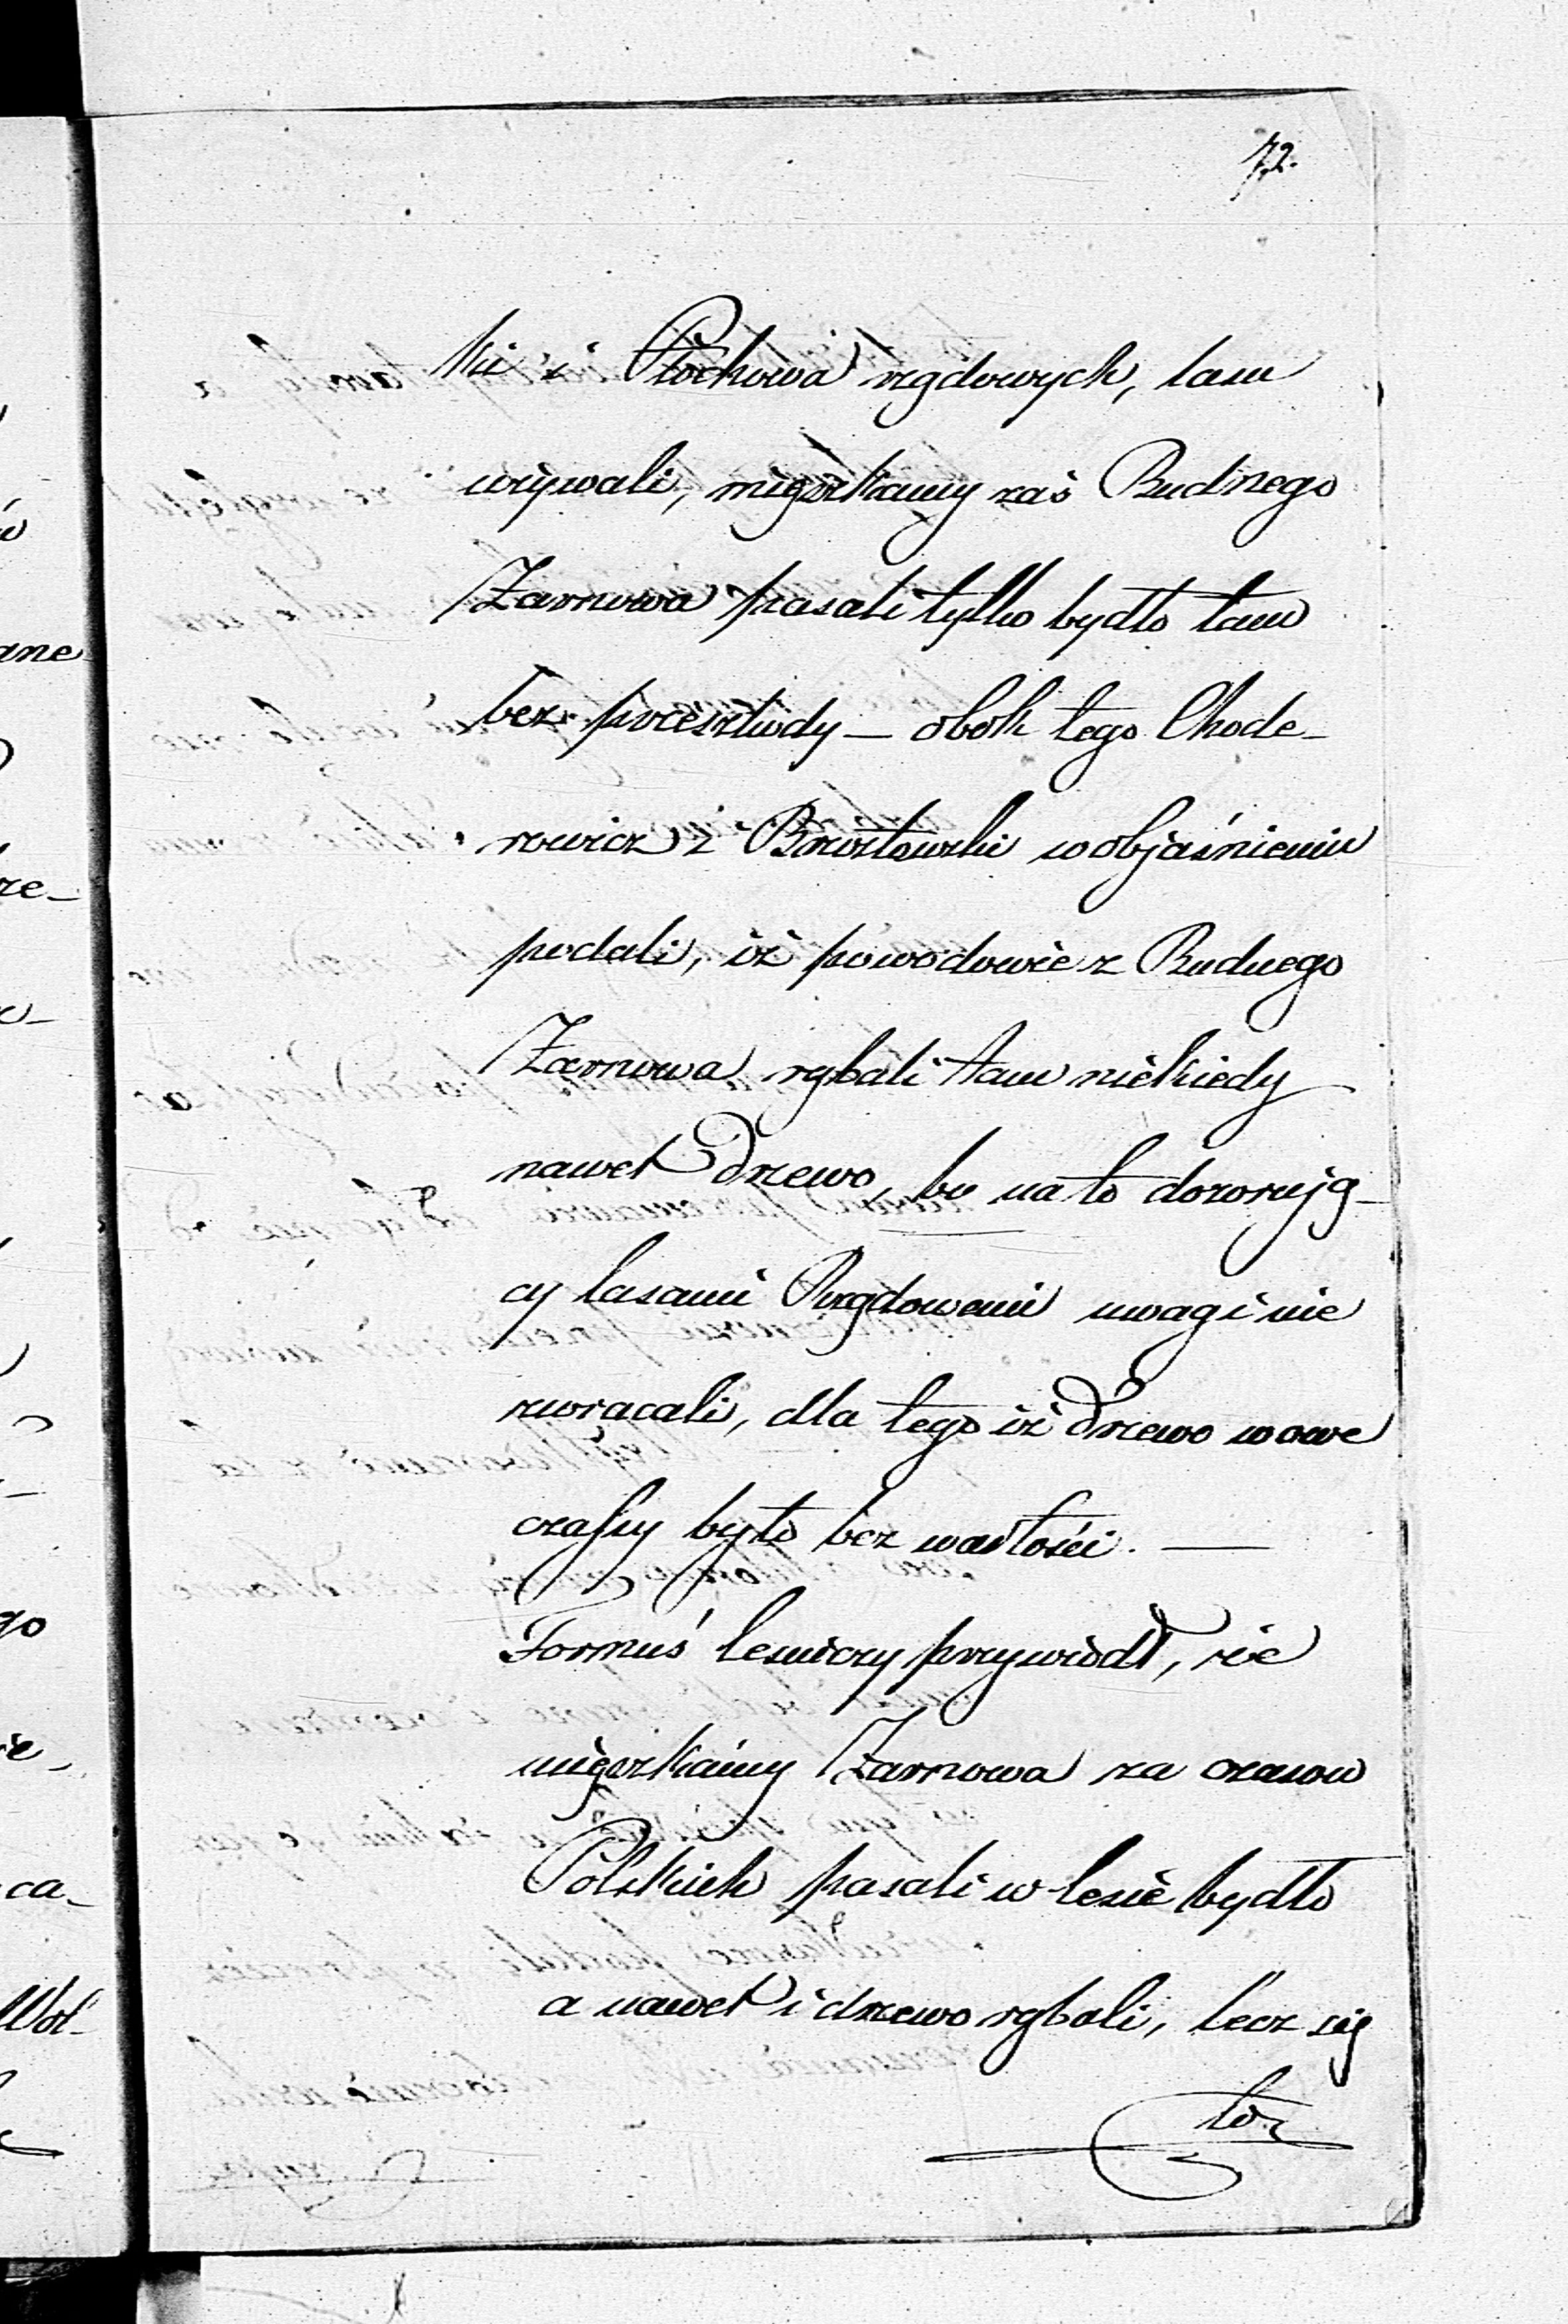 72.
ki i Płochowa rządowych, tam
używali, mięszkańcy zaś Budnego
Żarnowa pasali tylko bydło tam
bez przeszkody — obok tego Chode-
rowicz i Brzozłowski w objaśnieniu
podali, iż powodowie z Budnego
Żarnowa rąbali tam niekiedy
nawet Drzewo, bo na to dozorują-
cy lasami Rządowemi uwagi nie
zwracali, dla tego iż Drzewo w owe
czassy było bez wartości. —
Formuś lesniczy przywiódł, że
mięszkańcy Żarnowa za czasow
Polskich pasali w lesie bydło
a nawet i drzewo rąbali, lecz się
to